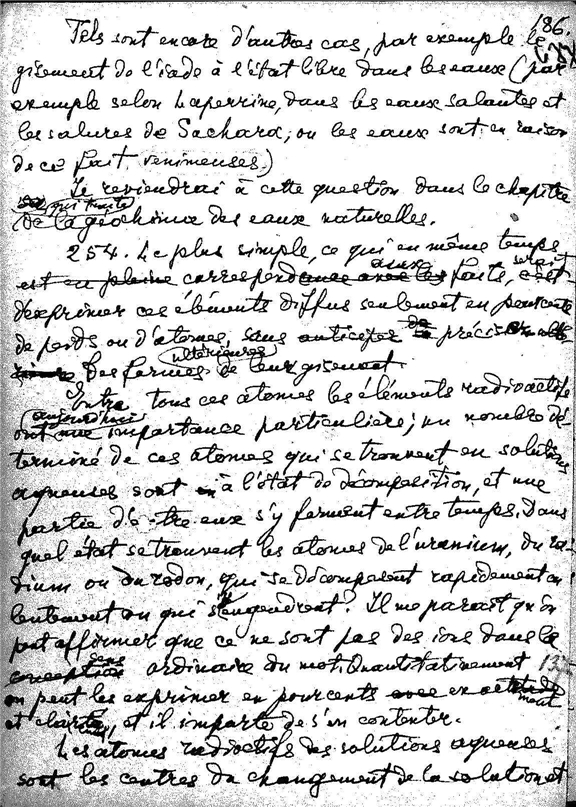 186.
Tels sont encore d'autres cas, par exemple le
gisement de l'iode à l'état libre dans les eaux (par
exemple selon Laperrine, dans les eaux salantes et
les salures de Sachara, où les eaux sont en raison
de ce fait venimeuses.)
Je reviendrai à cette question dans le chapitre
qui traite
de la géochimie des eaux naturelles.
254. Le plus simple, ce qui en même temps
serait
est en pleine correspondance avec les aux faits, c'est
d'exprimer ces éléments diffus seulement en pourcents
de poids ou d'atomes, sans anticiper de précisions
ultérieures
des formes de leur gisement.
Entre tous ces atomes les éléments radioactifs
aujourd'hui
ont une importance particulière; un nombre dé-
terminé de ces atomes qui se trouvent en solutions
aqueuses sont à l'état de décomposition, et une
partie d'entre eux s'y forment entre temps. Dans
quel état se trouvent les atomes de l'uranium, du ra-
dium ou du radon, qui se décomposent rapidement ou
lentement ou qui s'engendrent? Il me paraît qu'on
peut affirmer que ce ne sont pas des ions dans le
sens
conception ordinaire du mot. Quantitativement 132
on peut les exprimer en pourcents avec exactitude
ment
et clarté, et il importe de s'en contenter.
Les atomes radioactifs des solutions aqueuses
sont les centres du changement de la solution et